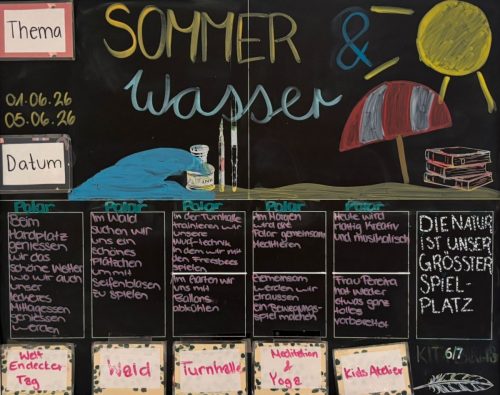 Thema
SOMMER &
Wasser
01.06.26
05.06.26
Datum
Polar
Polar
Polar
Polar
Polar
Beim
Nordplatz
geniessen
wir das
schöne Wetter
wo wir auch
unser
leckeres
Mittagessen
geniessen
werden
Im Wald
suchen wir
uns ein
schönes
Plätzchen
um mit
Seifenblasen
zu spielen
In der Turnhalle
trainieren wir
unsere
Wurf-technik
in dem wir mit
den Freesbees
spielen
Im Garten wir
uns mit
Ballons
abkühlen
Am Morgen
wird die
Polar gemeinsam
meditieren
Gemeinsam
werden wir
draussen
ein Bewegungs-
spiel machen
Heute wird
richtig Kreativ
und musikalisch
Frau Pereira
hat wieder
etwas ganz
tolles
vorbereitet
DIE NATUR
IST UNSER
GRÖSSTER
SPIEL-
PLATZ
Welt
Endecker
Tag
Wald
Turnhalle
Meditation
&
Yoga
Kids Atelier
KIT 6/7